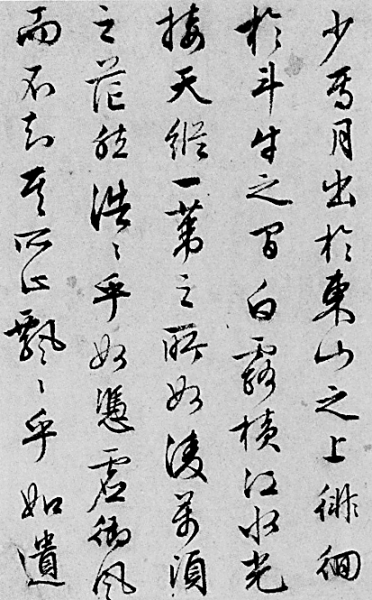 少焉月出於東山之上徘徊
於斗牛之間白露橫江水光
接天縱一葦之所如淩萬頃
之茫然浩〻乎如憑虛御風
而不知其所止飄〻乎如遺